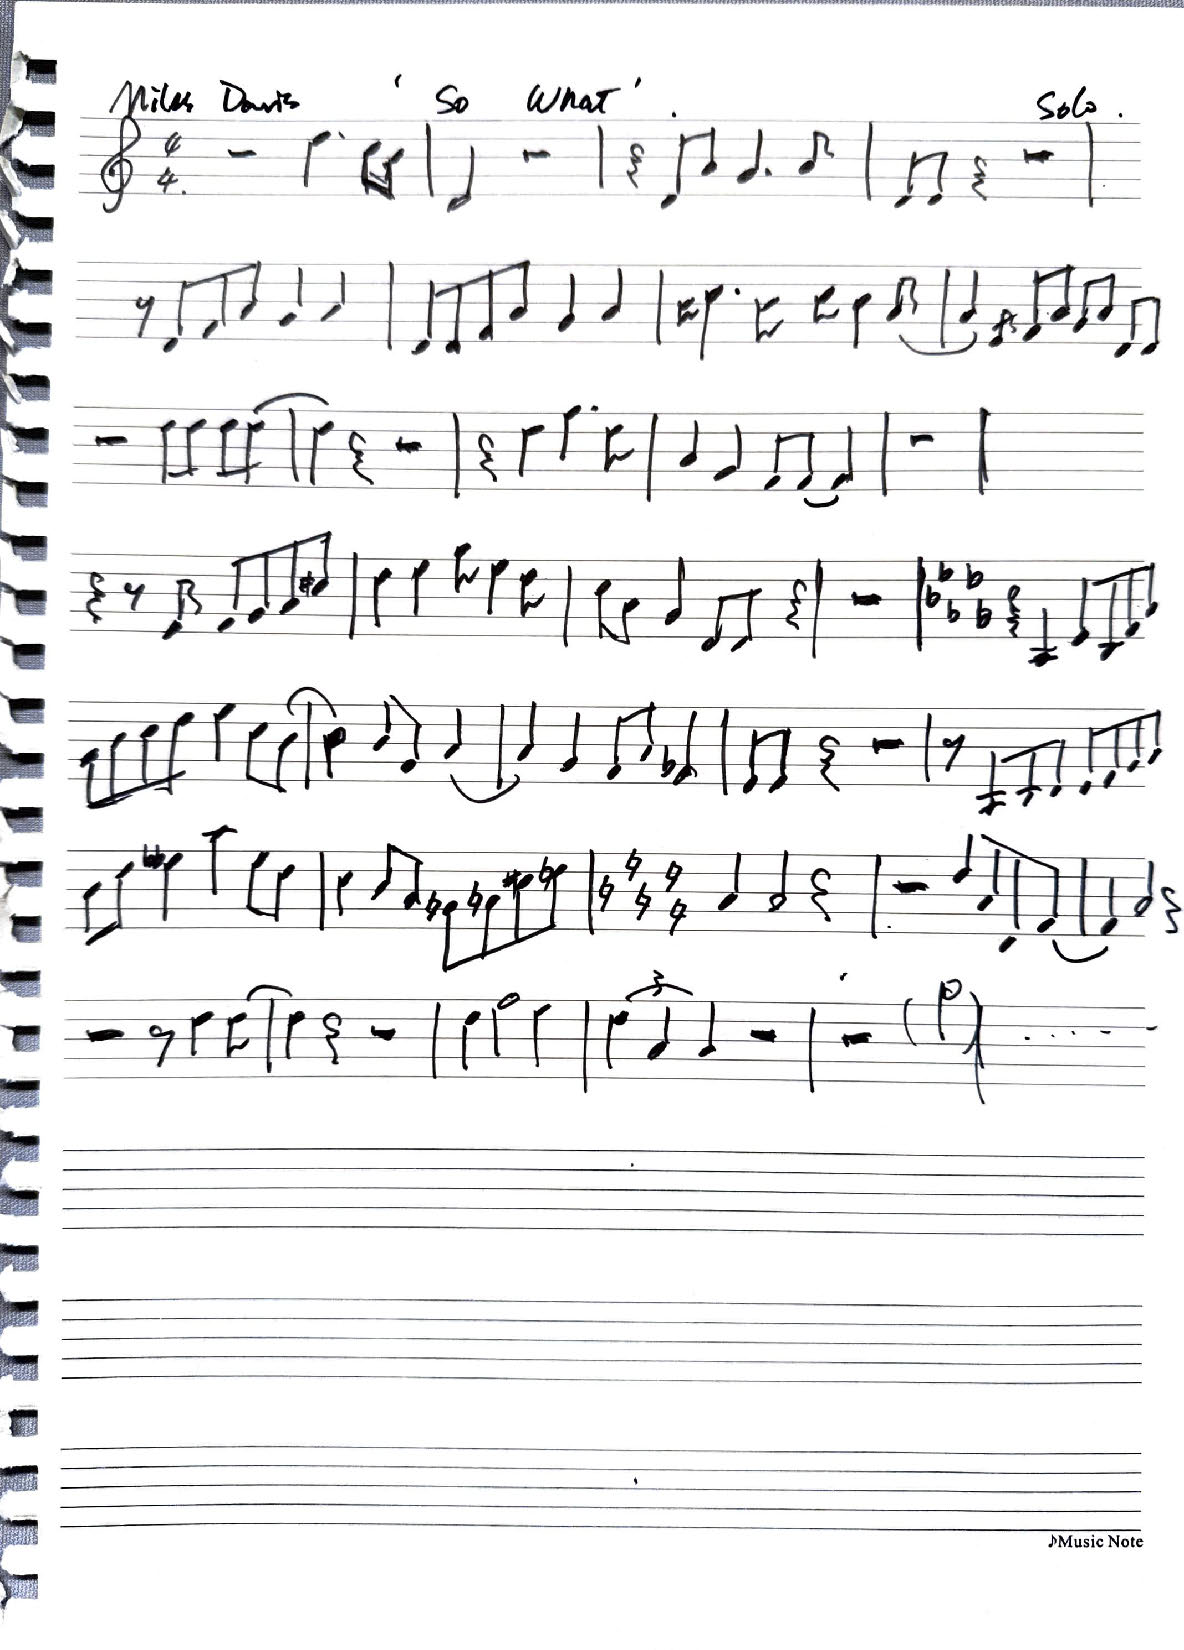 Miles Davis 'So What'. Solo.
4
4.
3
♪Music Note